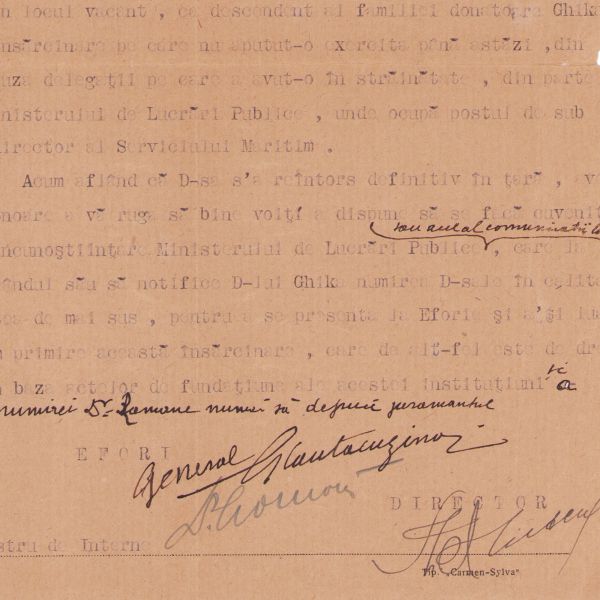 n locul vacant , ca descendent al familiei donatoare Ghika
nsărcinare pe care nu aputut-o exercita până astăzi , din
uza delegaţii pe care a avut-o în străinătate , din parte
inisterului de Lucrări Publice , unde ocupă postul de sub
director al Serviciului Maritim .
Acum aflând că D-sa s'a reîntors definitiv în ţară , av
onoare a vă ruga să bine voiţi a dispune să se facă cuvenit
ncunoştiinţare Ministerului de Lucrări Publice , care în
rândul său să notifice D-lui Ghika numirea D-sale în calita
tea de mai sus , pentru a se presenta la Eforie şi a'şi lua
n primire această însărcinare , care de alt-fel este de dre
n baza actelor de fundaţiune ale acestei instituţiuni şi a
numirei D. Romane numai să depuie juramantul
EFORI
General Cantacuzino
DIRECTOR
stru de Interne
Tip. „Carmen-Sylva"